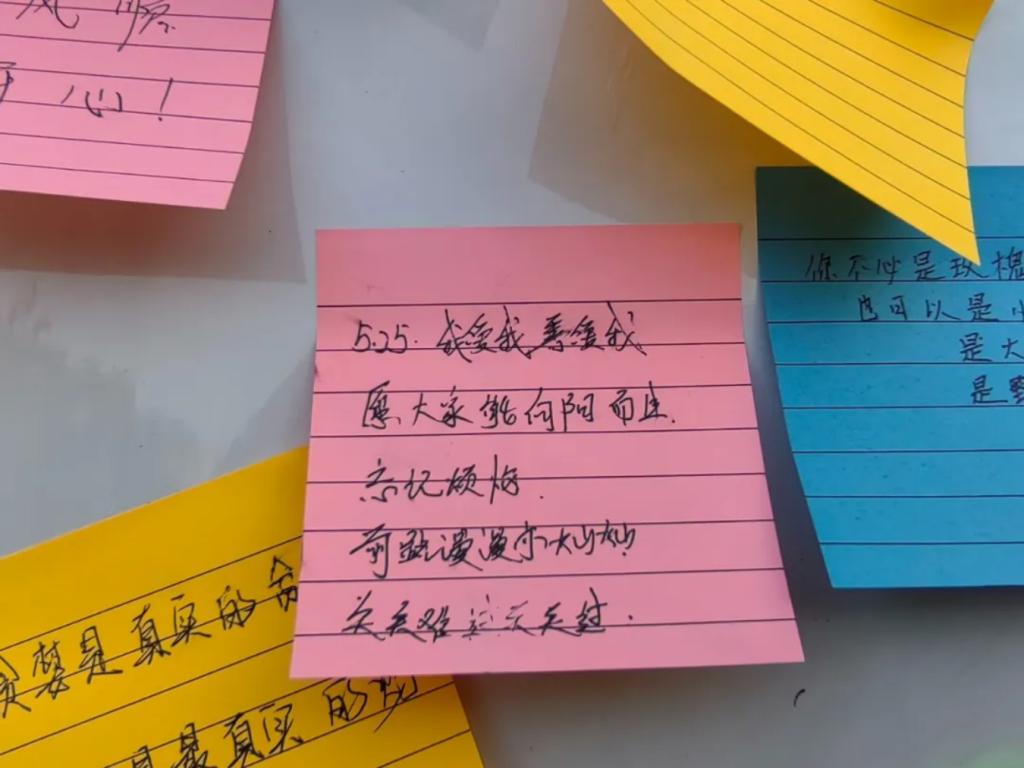 风 顺
开心！
5.25. 我爱我 善爱我
愿大家能向阳而生.
忘记烦恼.
前路漫漫亦灿灿
关关难过关关过.
你不必是玫瑰
也可以是小
是大
是野
梦是真实的
是最真实的